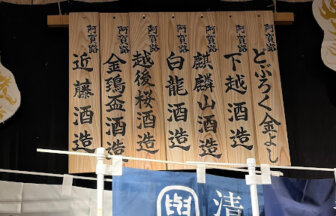 どぶろく 金よし
阿賀路 下越酒造
阿賀路 麒麟山酒造
阿賀路 白龍酒造
阿賀路 越後桜酒造
阿賀路 金鵄盃酒造
阿賀路 近藤酒造
清